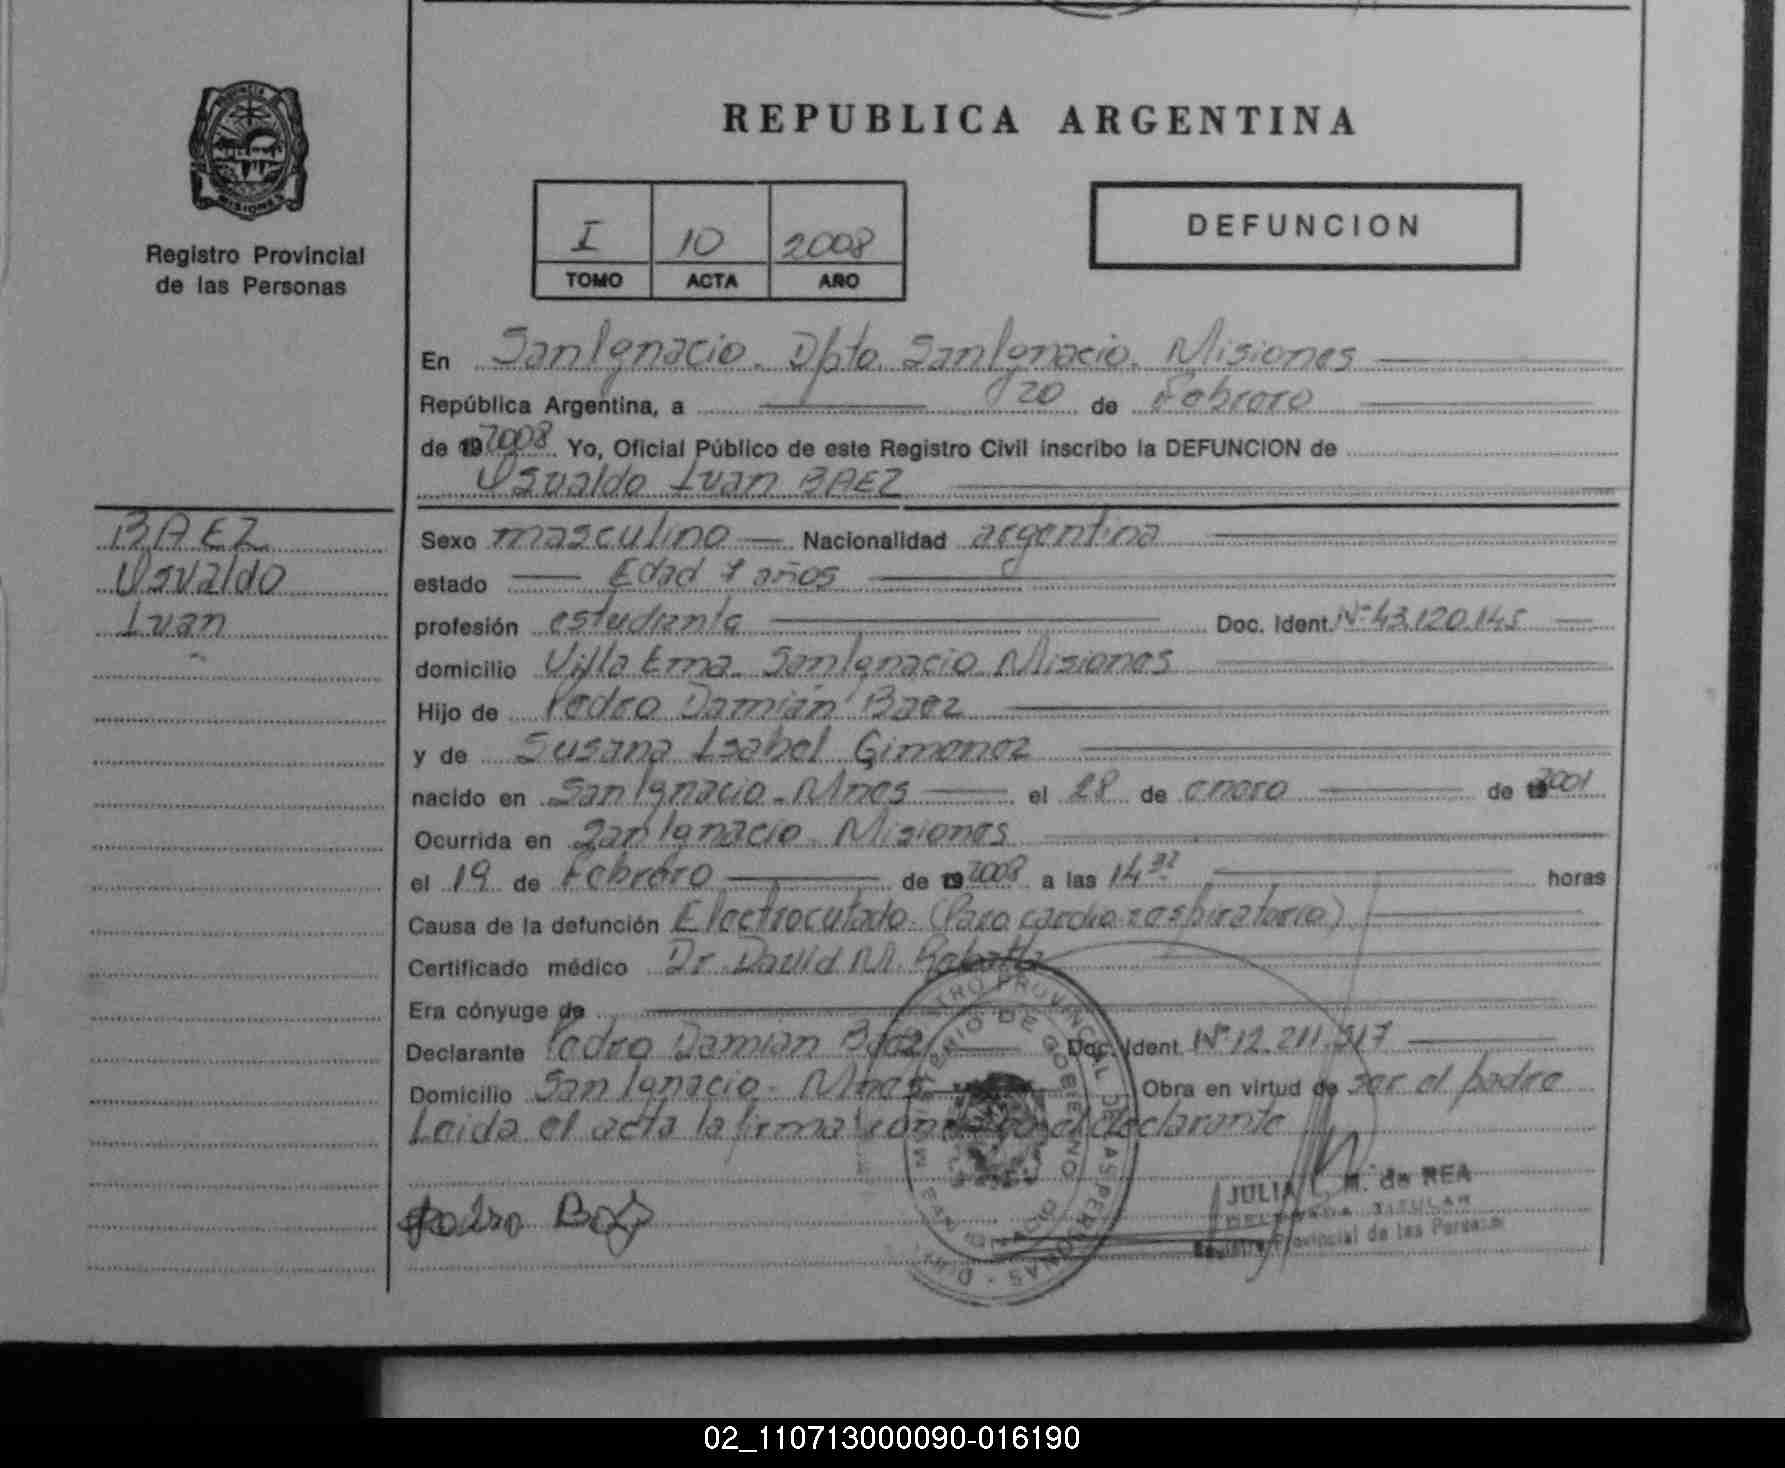 PROVINCIA DE
MISIONES
Registro Provincial
de las Personas
REPUBLICA ARGENTINA
I 10 2008
TOMO ACTA AÑO
DEFUNCION
En San Ignacio. Dpto. San Ignacio. Misiones
República Argentina, a 20 de Febrero
de 19 2008 Yo, Oficial Público de este Registro Civil inscribo la DEFUNCION de
Osvaldo Ivan BAEZ
BAEZ
Osvaldo
Ivan
Sexo masculino Nacionalidad argentina
estado Edad 7 años
profesión estudiante Doc. Ident. Nº 43.120.145
domicilio Villa Ema San Ignacio Misiones
Hijo de Pedro Damián Baez
y de Susana Isabel Gimenez
nacido en San Ignacio - Mnes el 28 de enero de 19 2001
Ocurrida en San Ignacio - Misiones
el 19 de Febrero de 19 2008 a las 14 horas
Causa de la defunción Electrocutado. (Paro cardio respiratorio)
Certificado médico Dr. David M.
Era cónyuge de
Declarante Pedro Damian Baez Doc. Ident. Nº 12.211.917
Domicilio San Ignacio - Mnes Obra en virtud de ser el padre
Leida el acta la firma conmigo el declarante
Pedro Baez
JULIA L. M. de REA
DELEGADA TITULAR
Registro Provincial de las Personas
REGISTRO PROVINCIAL DE LAS PERSONAS
MINISTERIO DE GOBIERNO
SAN IGNACIO
02_110713000090-016190